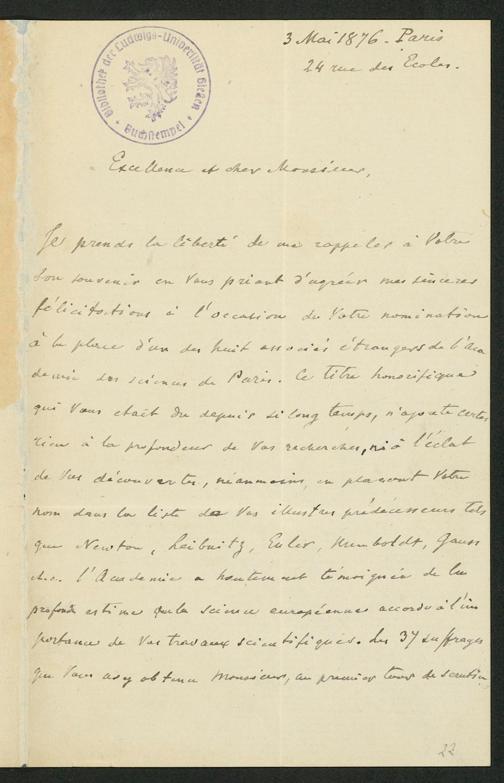 3 Mai 1876. Paris
24 rue des Écoles.
Bibliothek der Ludwigs-Universität Giessen
Buchstempel
Excellence et cher Monsieur,
Je prends la liberté de me rappeler à Votre
bon souvenir en Vous priant d'agréer mes sincères
félicitations à l'occasion de Votre nomination
à la place d'un des huit associés étrangers de l'Aca
demie des sciences de Paris. Ce titre honorifique
qui Vous était du depuis si long temps, n'ajoute certes
rien à la profondeur de Vos recherches, ni à l'éclat
de Vos découvertes, néanmoins, en plaçant Votre
nom dans la liste de Vos illustres prédécesseurs tels
que Newton, Leibnitz, Euler, Humboldt, Gauss
etc. l'Academie a hautement témoignée de la
profonde estime que la science européenne accorde à l'im
portance de Vos travaux scientifiques. Les 37 suffrages
que Vous avez obtenu Monsieur, au premier tour de scrutin
22